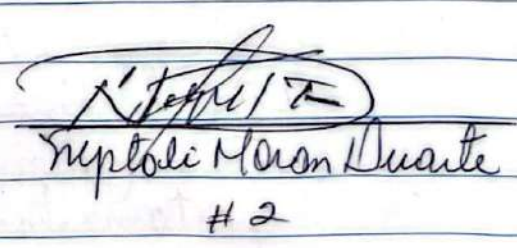 Neptali Moran Duarte
# 2